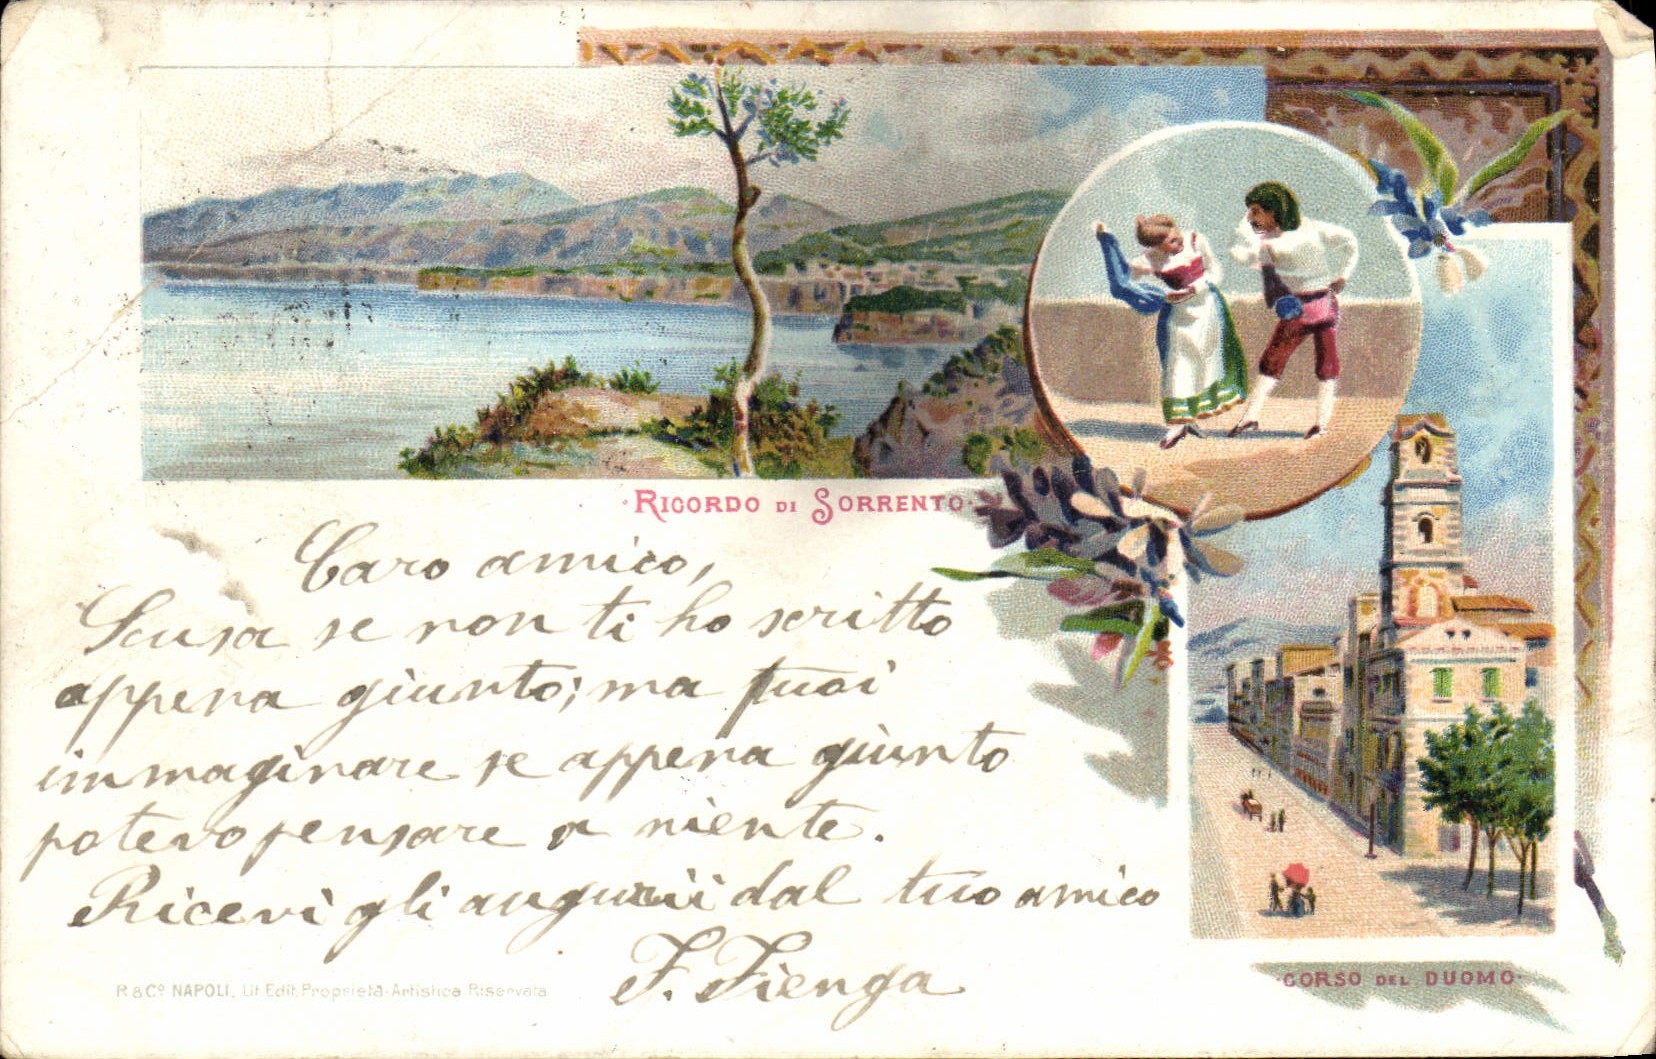 ·RICORDO DI SORRENTO·
Caro amico,
Scusa se non ti ho scritto
appena giunto; ma puoi
immaginare se appena giunto
potevo pensare a niente.
Ricevi gli augurii dal tuo amico
F. Fienga
R & Cº NAPOLI, Lit. Edit. Proprietà-Artistica Riservata
·CORSO DEL DUOMO·